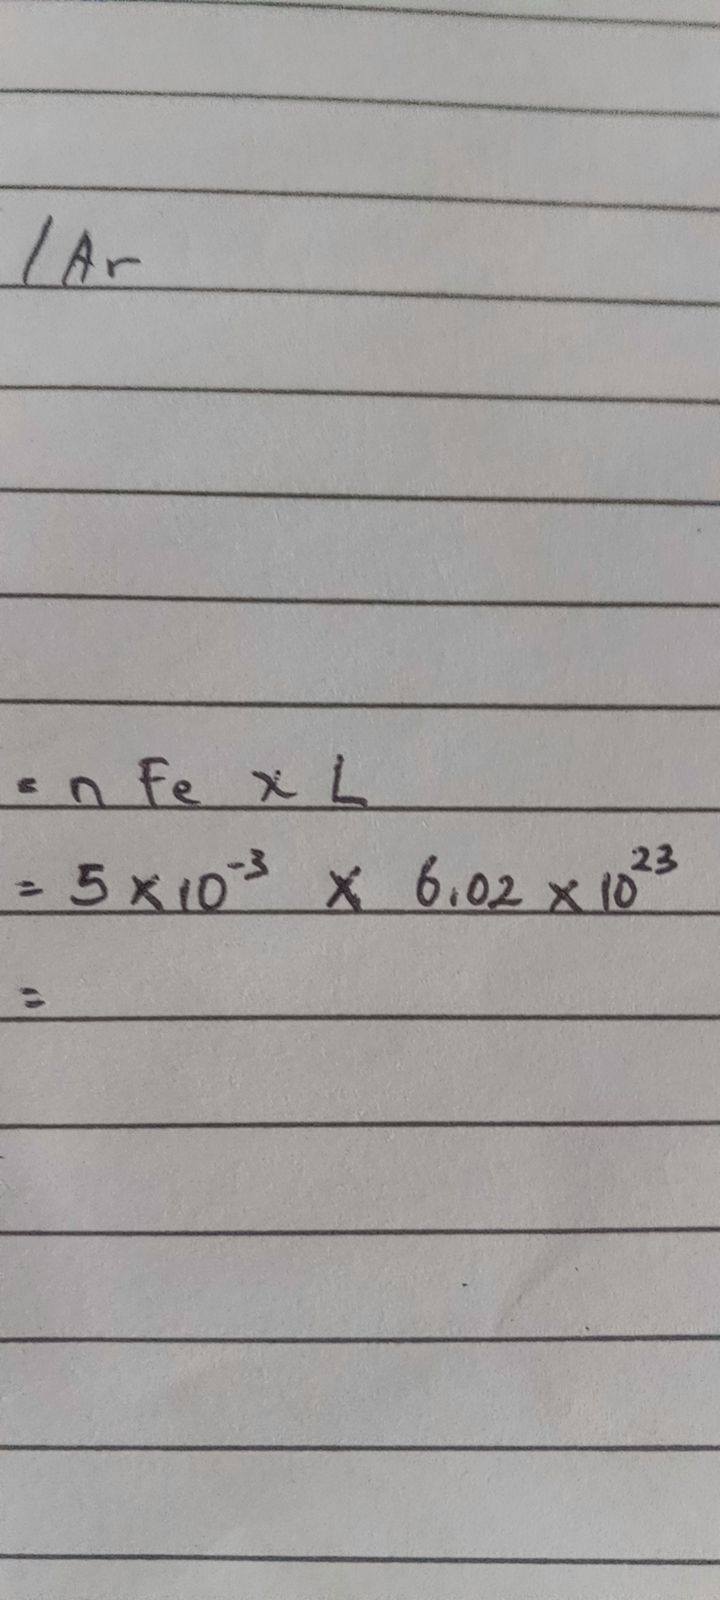 /Ar
= n Fe x L
= 5 x 10⁻³ x 6.02 x 10²³
=